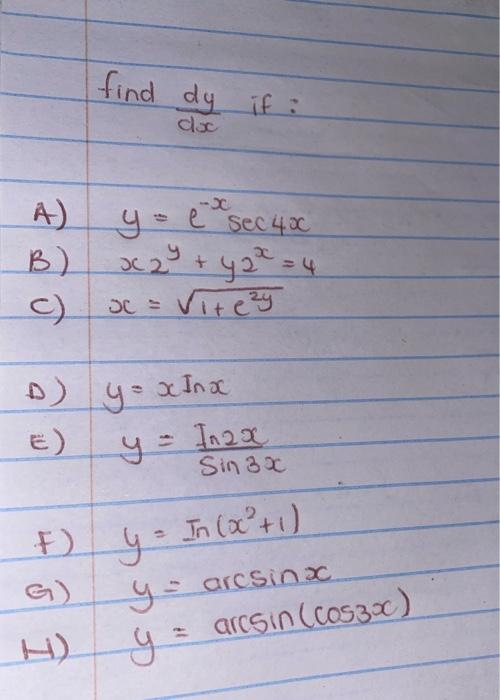 find dy/dx if :
A) y = e^-x sec4x
B) x2^y + y2^x = 4
C) x = √(1+e^2y)
D) y = x In x
E) y = In2x/Sin3x
F) y = In(x²+1)
G) y = arcsinx
H) y = arcsin(cos3x)